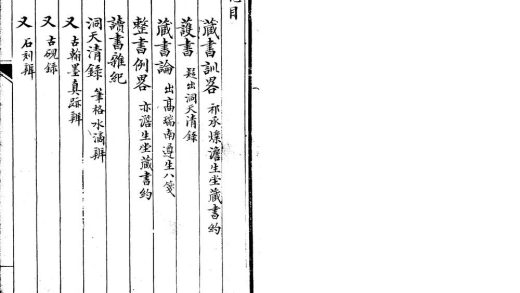 目
藏書訓畧 祁承㸁澹生堂藏書約
護書 疑出洞天清錄
藏書論 出高瑞南遵生八箋
整書例畧 亦澹生堂藏書約
讀書雜紀
洞天清錄 筆格水滴辨
又 古翰墨真跡辨
又 古硯錄
又 石刻辨